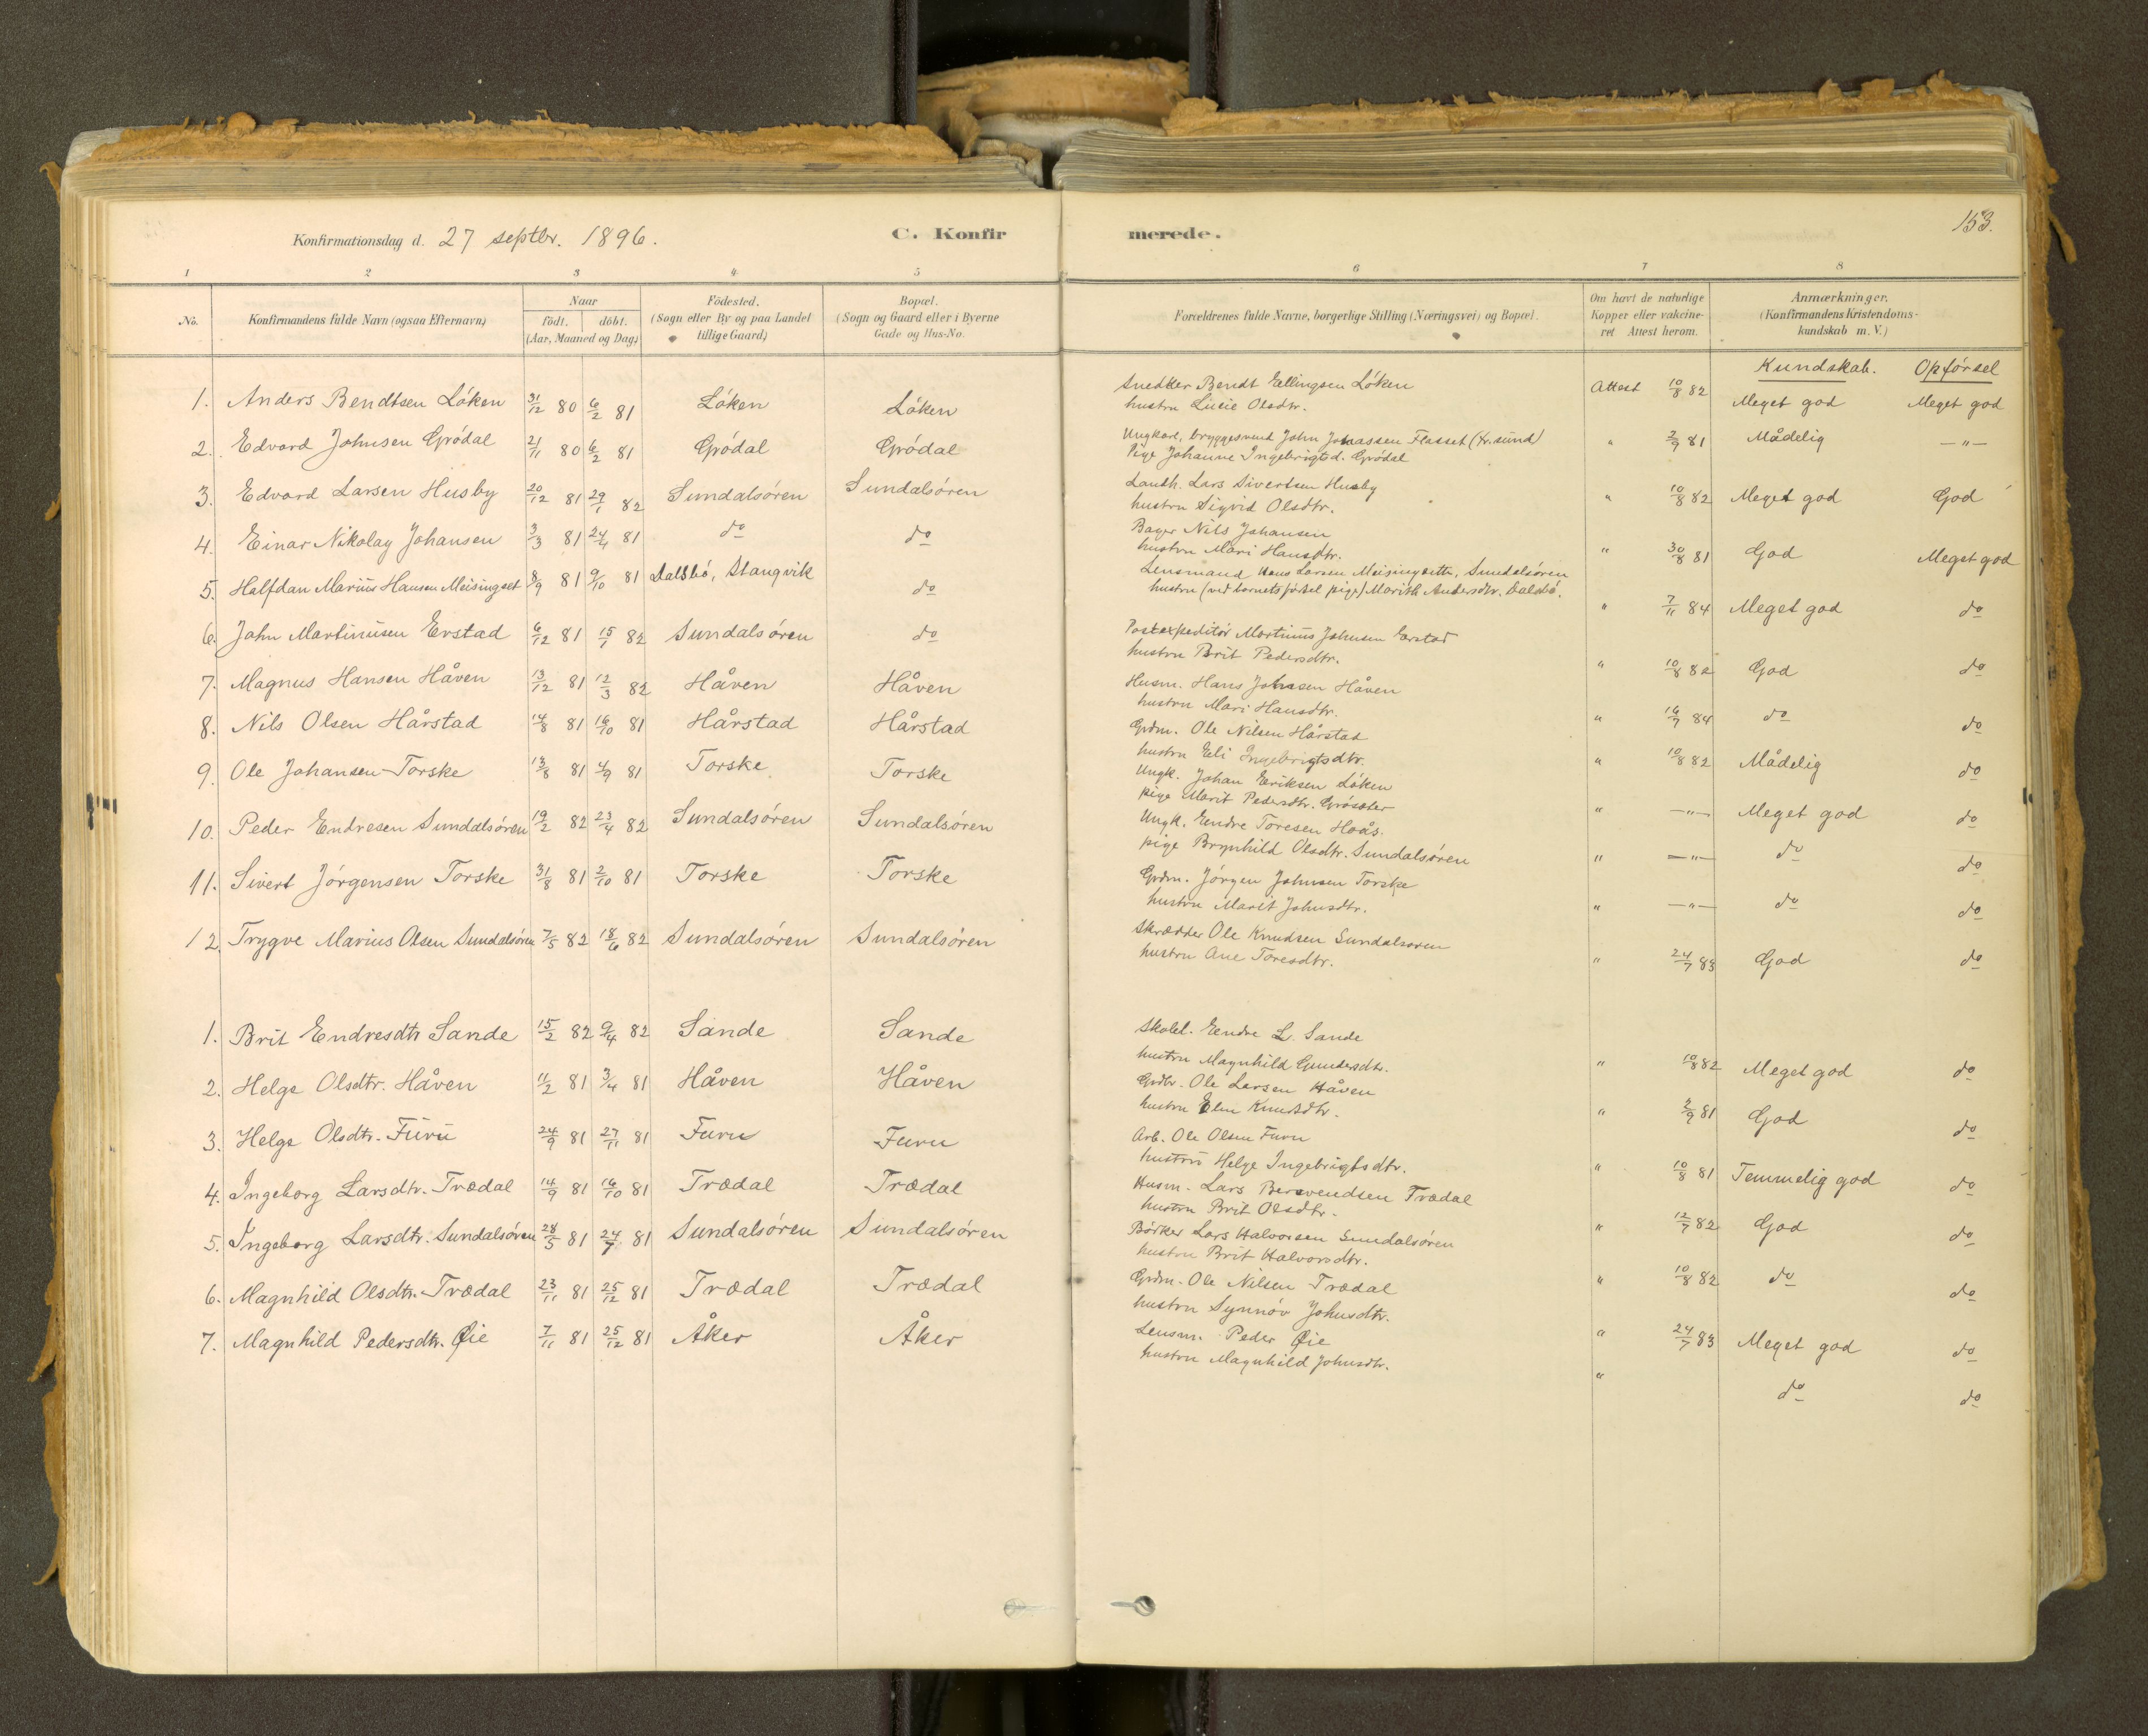 Konfirmationsdag d. 27 septbr. 1896.
C. Konfirmerede.
153.
1 2 3 4 5 6 7 8
No.
Konfirmandens fulde Navn (ogsaa Efternavn)
Naar
födt. döbt.
(Aar, Maaned og Dag)
Födested.
(Sogn eller By og paa Landet
tillige Gaard)
Bopæl.
(Sogn og Gaard eller i Byerne
Gade og Hus-No.
Forældrenes fulde Navne, borgerlige Stilling (Næringsvei) og Bopæl.
Om havt de naturlige
Kopper eller vakcine-
ret Attest herom.
Anmærkninger.
(Konfirmandens Kristendoms-
kundskab m. V.)
Kundskab. Opførsel
1. Anders Bendtsen Löken 31/12 80 6/2 81 Löken Löken
Snedker Bendt Ellingsen Löken
hustru Lucie Olsdtr.
Attest 10/8 82 Meget god Meget god
2. Edvard Johnsen Grödal 21/11 80 6/2 81 Grödal Grödal
Ungkarl, bryggesvend John Jonassen Flasset (Kr.sund)
Pige Johanne Ingebrigtsd. Grödal
" 2/9 81 Mådelig —"—
3. Edvard Larsen Husby 20/12 81 29/1 82 Sundalsören Sundalsören
Landh. Lars Sivertsen Husby
hustru Sigrid Olsdtr.
" 10/8 82 Meget god God
4. Einar Nikolay Johansen 3/3 81 24/4 81 do do
Bager Nils Johansen
hustru Mari Hansdtr.
" 30/8 81 God Meget god
5. Halfdan Marius Hansen Meisingset 8/9 81 9/10 81 Dalsbö, Stangvik do
Lensmand Hans Larsen Meisingseth, Sundalsören
hustru (ved barnets födsel pige) Marith Andersdtr. Dalsbö.
" 7/11 84 Meget god do
6. John Martinusen Erstad 6/12 81 15/1 82 Sundalsören do
Postexpeditör Martinus Johnsen Erstad
hustru Brit Pedersdtr.
" 10/8 82 God do
7. Magnus Hansen Håven 13/12 81 12/3 82 Håven Håven
Husm. Hans Johnsen Håven
hustru Mari Hansdtr.
" 16/7 84 do do
8. Nils Olsen Hårstad 14/8 81 16/10 81 Hårstad Hårstad
Grdm. Ole Nilsen Hårstad
hustru Eli Ingebrigtsdtr.
" 10/8 82 Mådelig do
9. Ole Johansen Torske 13/8 81 4/9 81 Torske Torske
Ungk. Johan Eriksen Löken
pige Marit Pedersdtr. Gröseter
" —"— Meget god do
10. Peder Endresen Sundalsören 19/2 82 23/4 82 Sundalsören Sundalsören
Ungk. Endre Toresen Hoås.
pige Brynhild Olsdtr. Sundalsören
" —"— do do
11. Sivert Jörgensen Torske 31/8 81 2/10 81 Torske Torske
Grdm. Jörgen Johnsen Torske
hustru Marit Johnsdtr.
" —"— do do
12. Trygve Marius Olsen Sundalsören 7/5 82 18/6 82 Sundalsören Sundalsören
Skrædder Ole Knudsen Sundalsören
hustru Ane Toresdtr.
" 24/7 83 God do
1. Brit Endresdtr Sande 15/2 82 9/4 82 Sande Sande
Skolel. Endre L. Sande
hustru Magnhild Gundersdtr.
" 10/8 82 Meget god do
2. Helge Olsdtr. Håven 11/2 81 3/4 81 Håven Håven
Grdbr. Ole Larsen Håven
hustru Elin Knudsdtr.
" 2/9 81 God do
3. Helge Olsdtr. Furu 24/9 81 27/11 81 Furu Furu
Arb. Ole Olsen Furu
hustru Helge Ingebrigtsdtr.
" 10/8 81 Temmelig god do
4. Ingeborg Larsdtr. Trædal 14/9 81 16/10 81 Trædal Trædal
Husm. Lars Bersvendsen Trædal
hustru Brit Olsdtr.
" 12/7 82 God do
5. Ingeborg Larsdtr. Sundalsören 28/5 81 24/7 81 Sundalsören Sundalsören
Börker Lars Halvorsen Sundalsören
hustru Brit Halvorsdtr.
" 10/8 82 do do
6. Magnhild Olsdtr. Trædal 23/11 81 25/12 81 Trædal Trædal
Grdm. Ole Nilsen Trædal
hustru Synnöv Johnsdtr.
" 24/7 83 Meget god do
7. Magnhild Pedersdtr. Øie 7/11 81 25/12 81 Åker Åker
Lensm. Peder Øie
hustru Magnhild Johnsdtr.
" do do